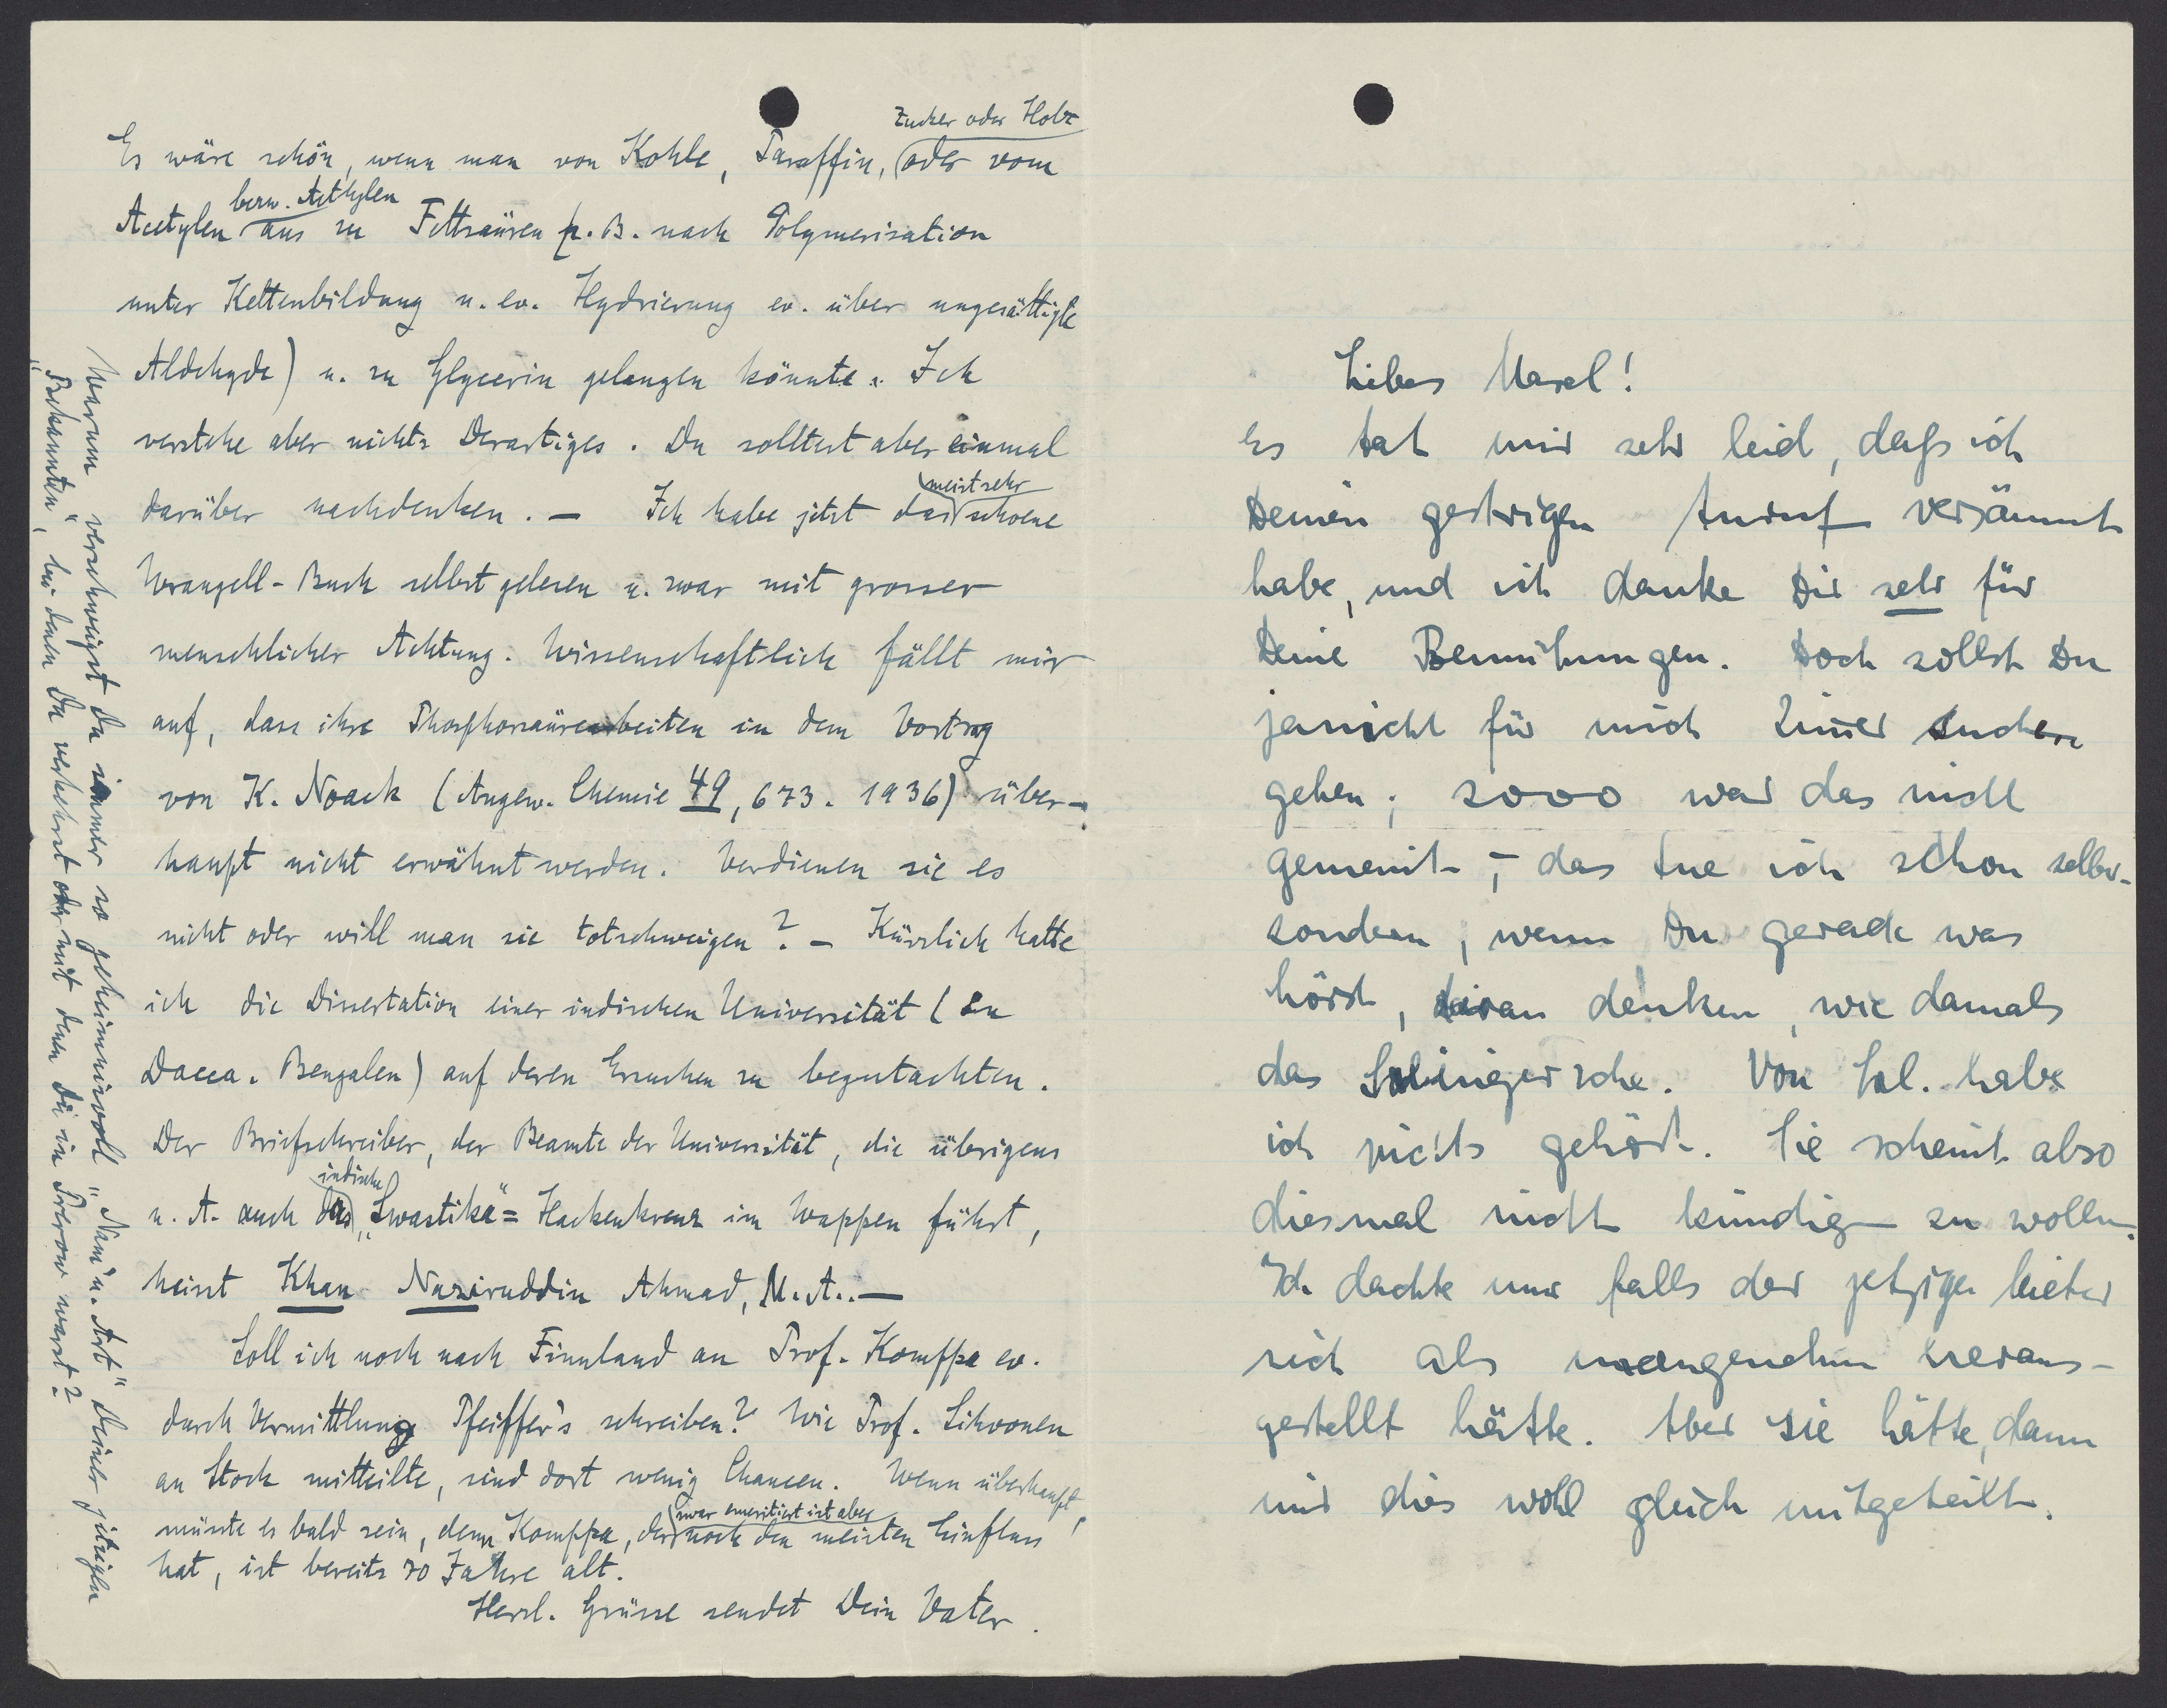 Es wäre schön, wenn man von Kohle, Paraffin, Zucker oder Holz oder vom
Acetylen bezw. Aethylen aus zu Fettsäuren (z. B. nach Polymerisation
unter Kettenbildung u. ev. Hydrierung ev. über ungesättigte
Aldehyde) u. zu Glycerin gelangen könnte. Ich
verstehe aber nichts Derartiges. Du solltest aber einmal
darüber nachdenken. — Ich habe jetzt das meist sehr schoene
Wrangell-Buch selbst gelesen u. zwar mit grosser
menschlicher Achtung. Wissenschaftlich fällt mir
auf, dass ihre Phosphorsäurearbeiten in dem Vortrag
von K. Noack (Angew. Chemie 49, 673. 1936) über-
haupt nicht erwähnt werden. Verdienen sie es
nicht oder will man sie totschweigen? — Kürzlich hatte
ich die Dissertation einer indischen Universität (in
Dacca. Bengalen) auf deren Ersuchen zu begutachten.
Der Briefschreiber, der Beamte der Universität, die übrigens
u. A. auch das indische „Swastika“ = Hackenkreuz im Wappen führt,
heisst Khan Naziruddin Ahmad, M. A.. —
Soll ich noch nach Finnland an Prof. Komppa ev.
durch Vermittlung Pfeiffer's schreiben? Wie Prof. Sihvonen
an Stock mitteilte, sind dort wenig Chancen. Wenn überhaupt,
müsste es bald sein, denn Komppa, der zwar emeritiert ist aber noch den meisten Einfluss
hat, ist bereits 70 Jahre alt.
Herzl. Grüsse sendet Dein Vater.
Warum verschweigst Du immer so geheimnisvoll „Nam' u. Art“ Deiner jetzigen
„Bekannten“, bei denen Du verkehrst oder mit denen Du in Prerow warst?
Liebes Marel!
Es tat mir sehr leid, dass ich
Deinen gestrigen Anruf versäumt
habe, und ich danke Dir sehr für
Deine Bemühungen. Doch sollst Du
ja nicht für mich Zimmer suchen
gehen; sooo war das nicht
gemeint, – das tue ich schon selber-
sondern, wenn Du gerade was
hörst, daran denken, wie damals
das Salingersche. Von Sal. habe
ich nichts gehört. Sie scheint also
diesmal nicht kündigen zu wollen.
Ich dachte nur falls der jetzige Mieter
sich als unangenehm heraus-
gestellt hätte. Aber sie hätte, dann
mir dies wohl gleich mitgeteilt.